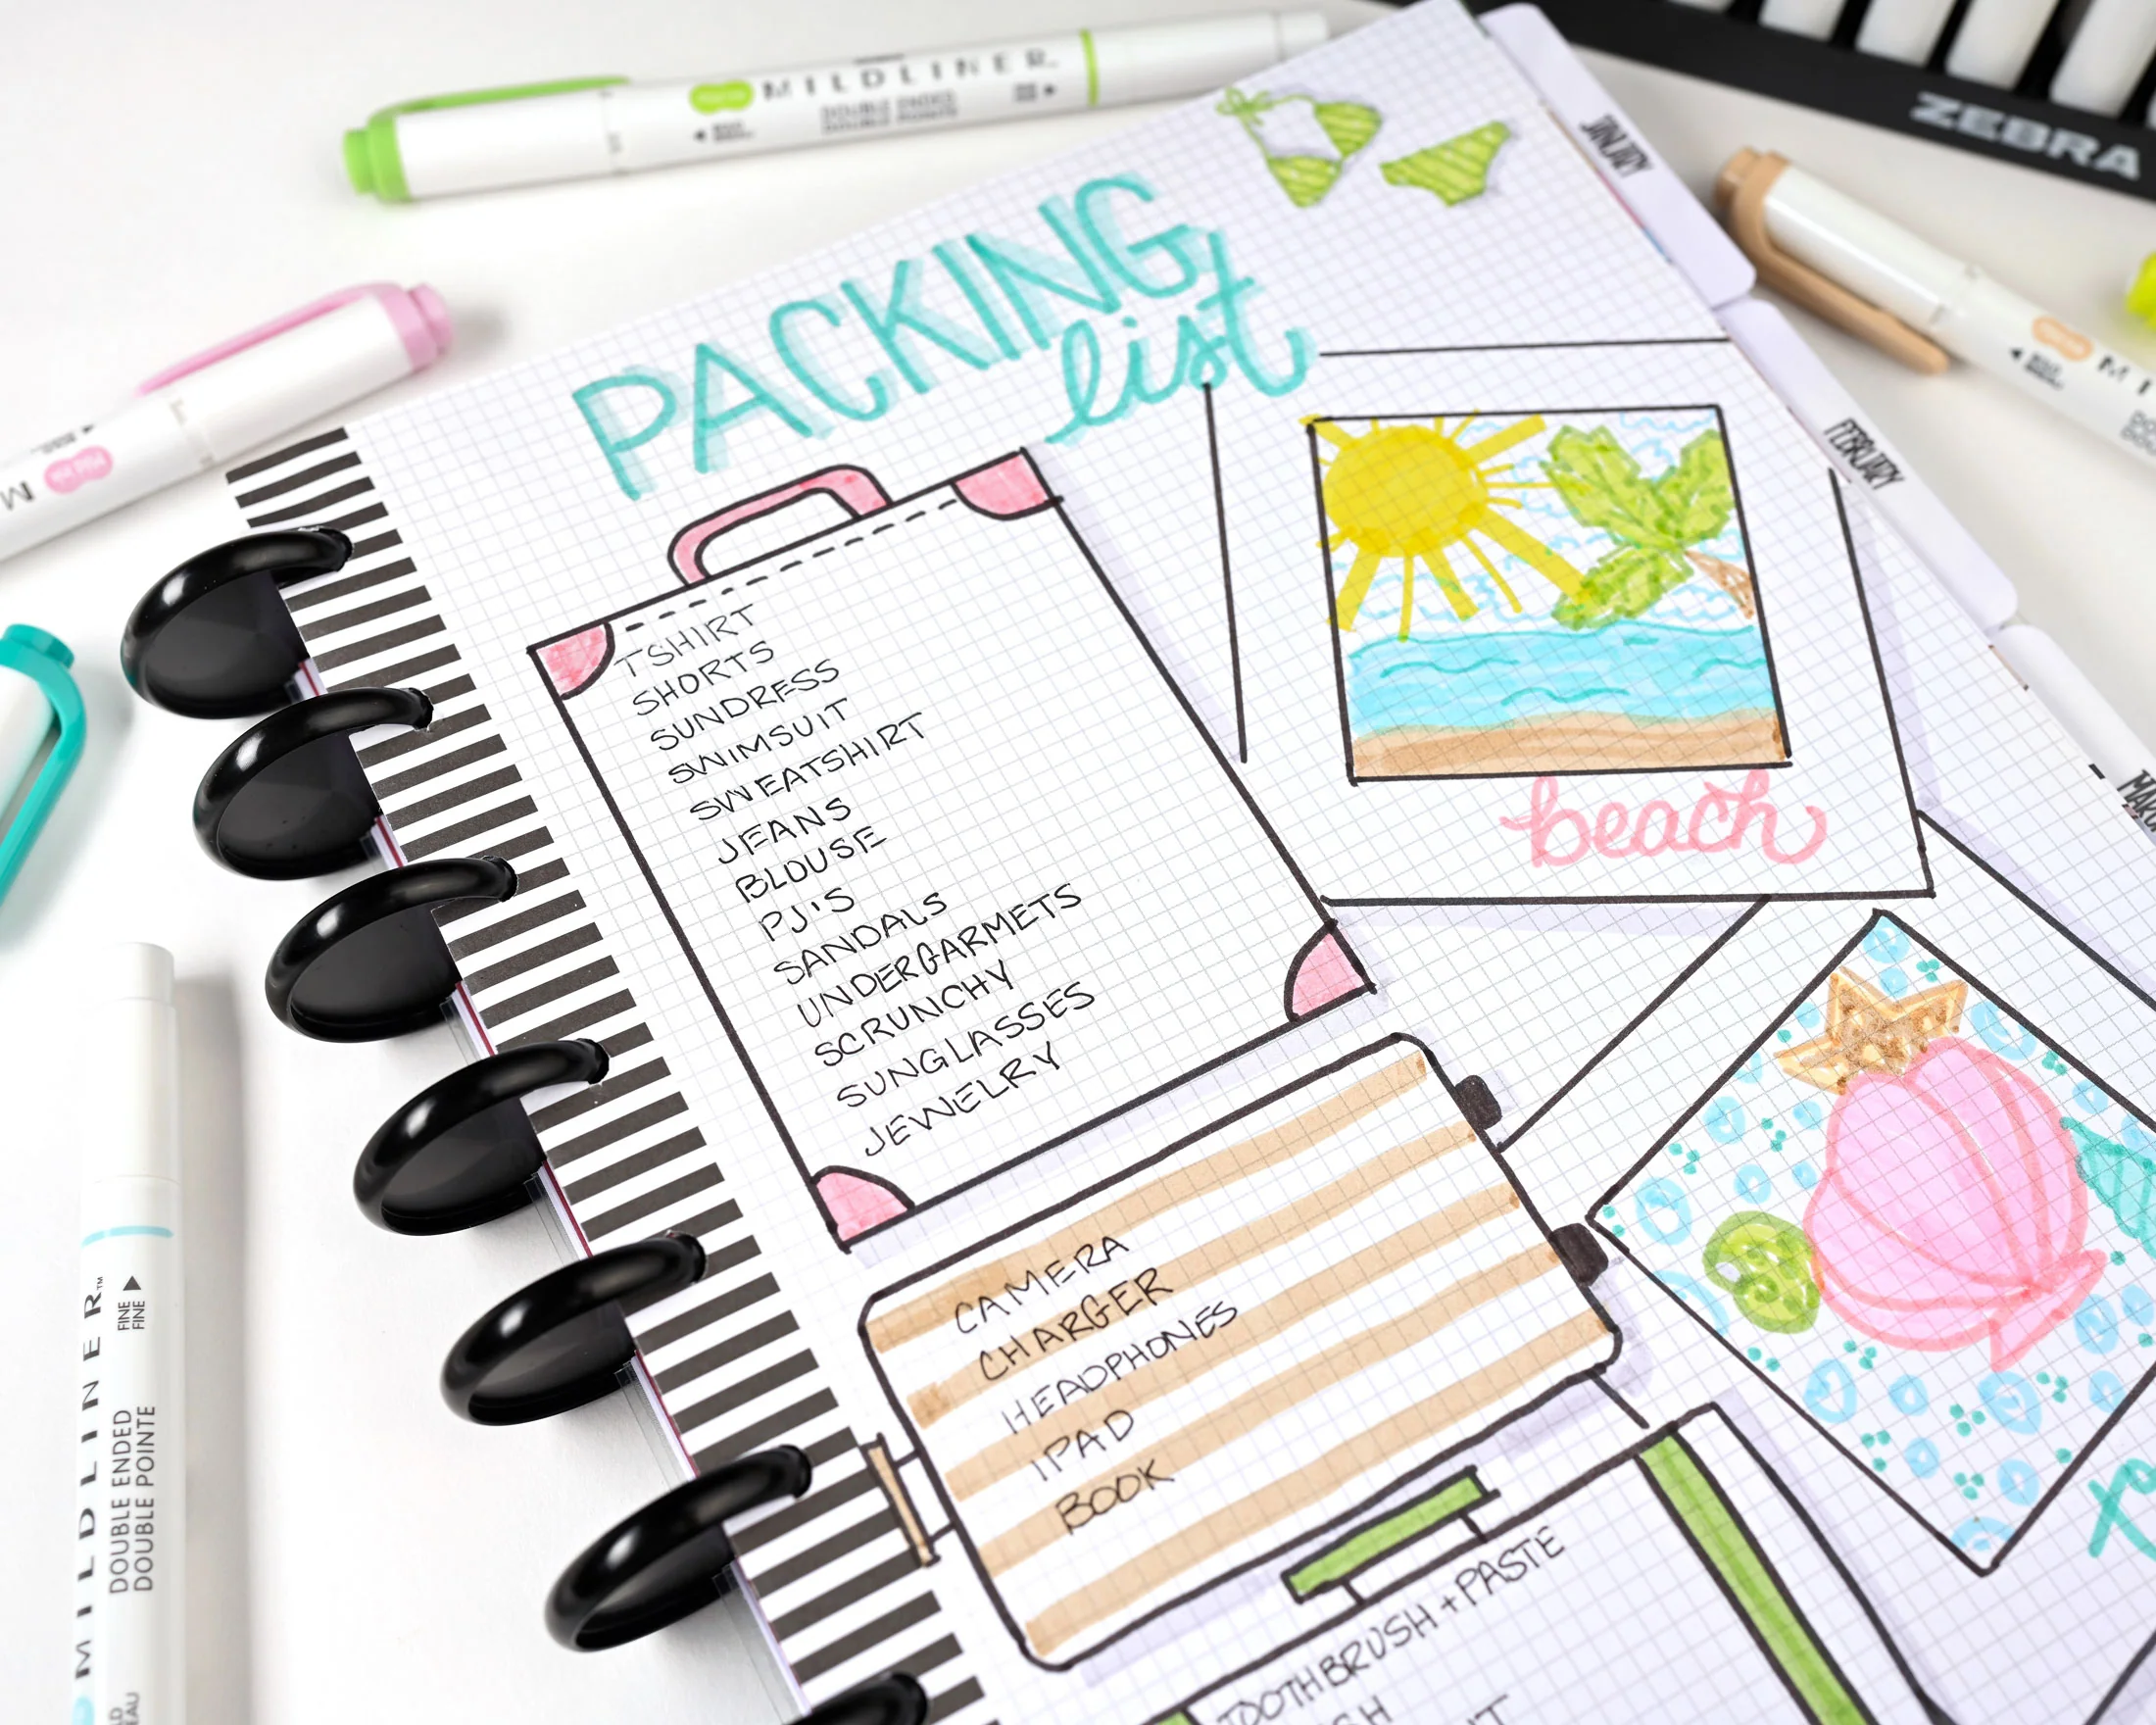 MILDLINER
DOUBLE ENDED
DOUBLE POINTE
ZEBRA
JANUARY
FEBRUARY
PACKING
list
TSHIRT
SHORTS
SUNDRESS
SWIMSUIT
SWEATSHIRT
JEANS
BLOUSE
PJ'S
SANDALS
UNDERGARMETS
SCRUNCHY
SUNGLASSES
JEWELRY
beach
CAMERA
CHARGER
HEADPHONES
IPAD
BOOK
TOOTHBRUSH + PASTE
MILDLINER™
DOUBLE ENDED
DOUBLE POINTE
FINE
FINE